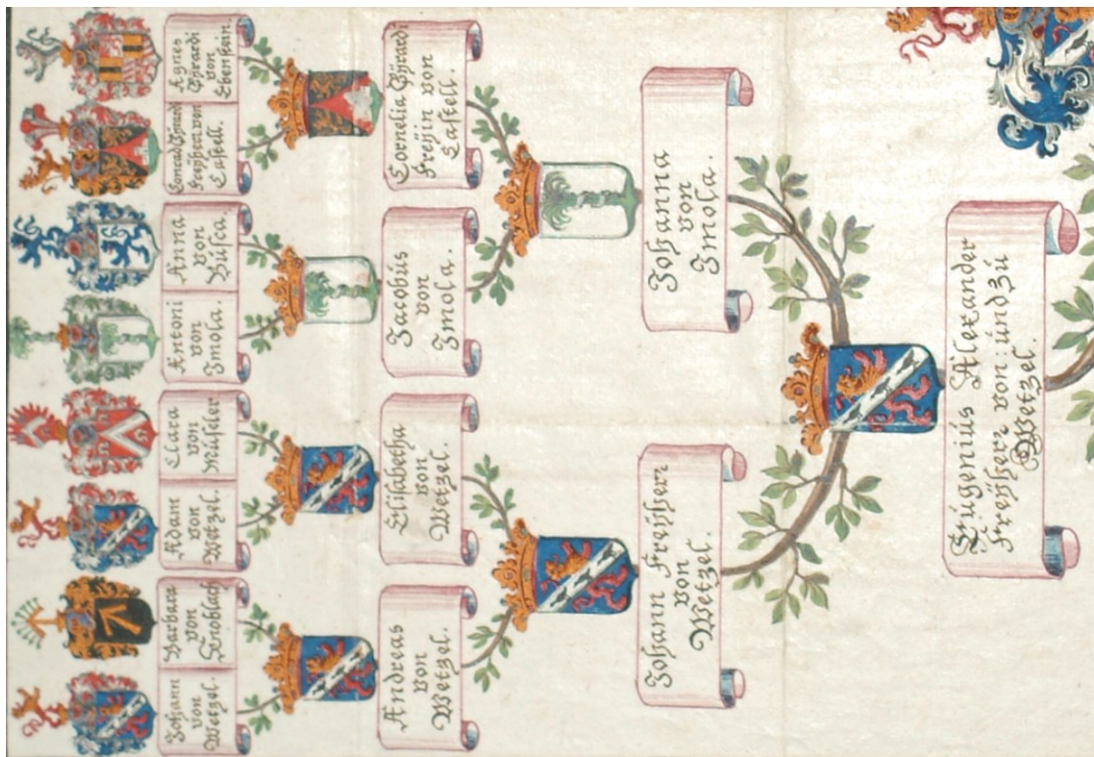 Johann
von
Wetzel.
Barbara
von
Knoblach
Adam
von
Wetzel.
Clara
von
Müseler
Antoni
von
Imola.
Anna
von
Búsca.
Conrad Gÿrardi
Freÿherr von
Castell.
Agnes
Gÿrardi
von
Ebenstein.
Andreas
von
Wetzel.
Elisabetha
von
Wetzel.
Jacobús
von
Imola.
Cornelia Gÿrardi
Freÿin von
Castell.
Johann Freÿherr
von
Wetzel.
Johanna
von
Imola.
Eúgenius Alexander
Freÿherr von: únd zú
Wetzel.